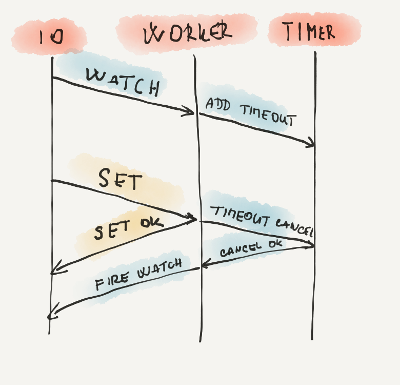 IO
WORKER
TIMER
WATCH
ADD TIMEOUT
SET
TIMEOUT CANCEL
SET OK
CANCEL OK
FIRE WATCH